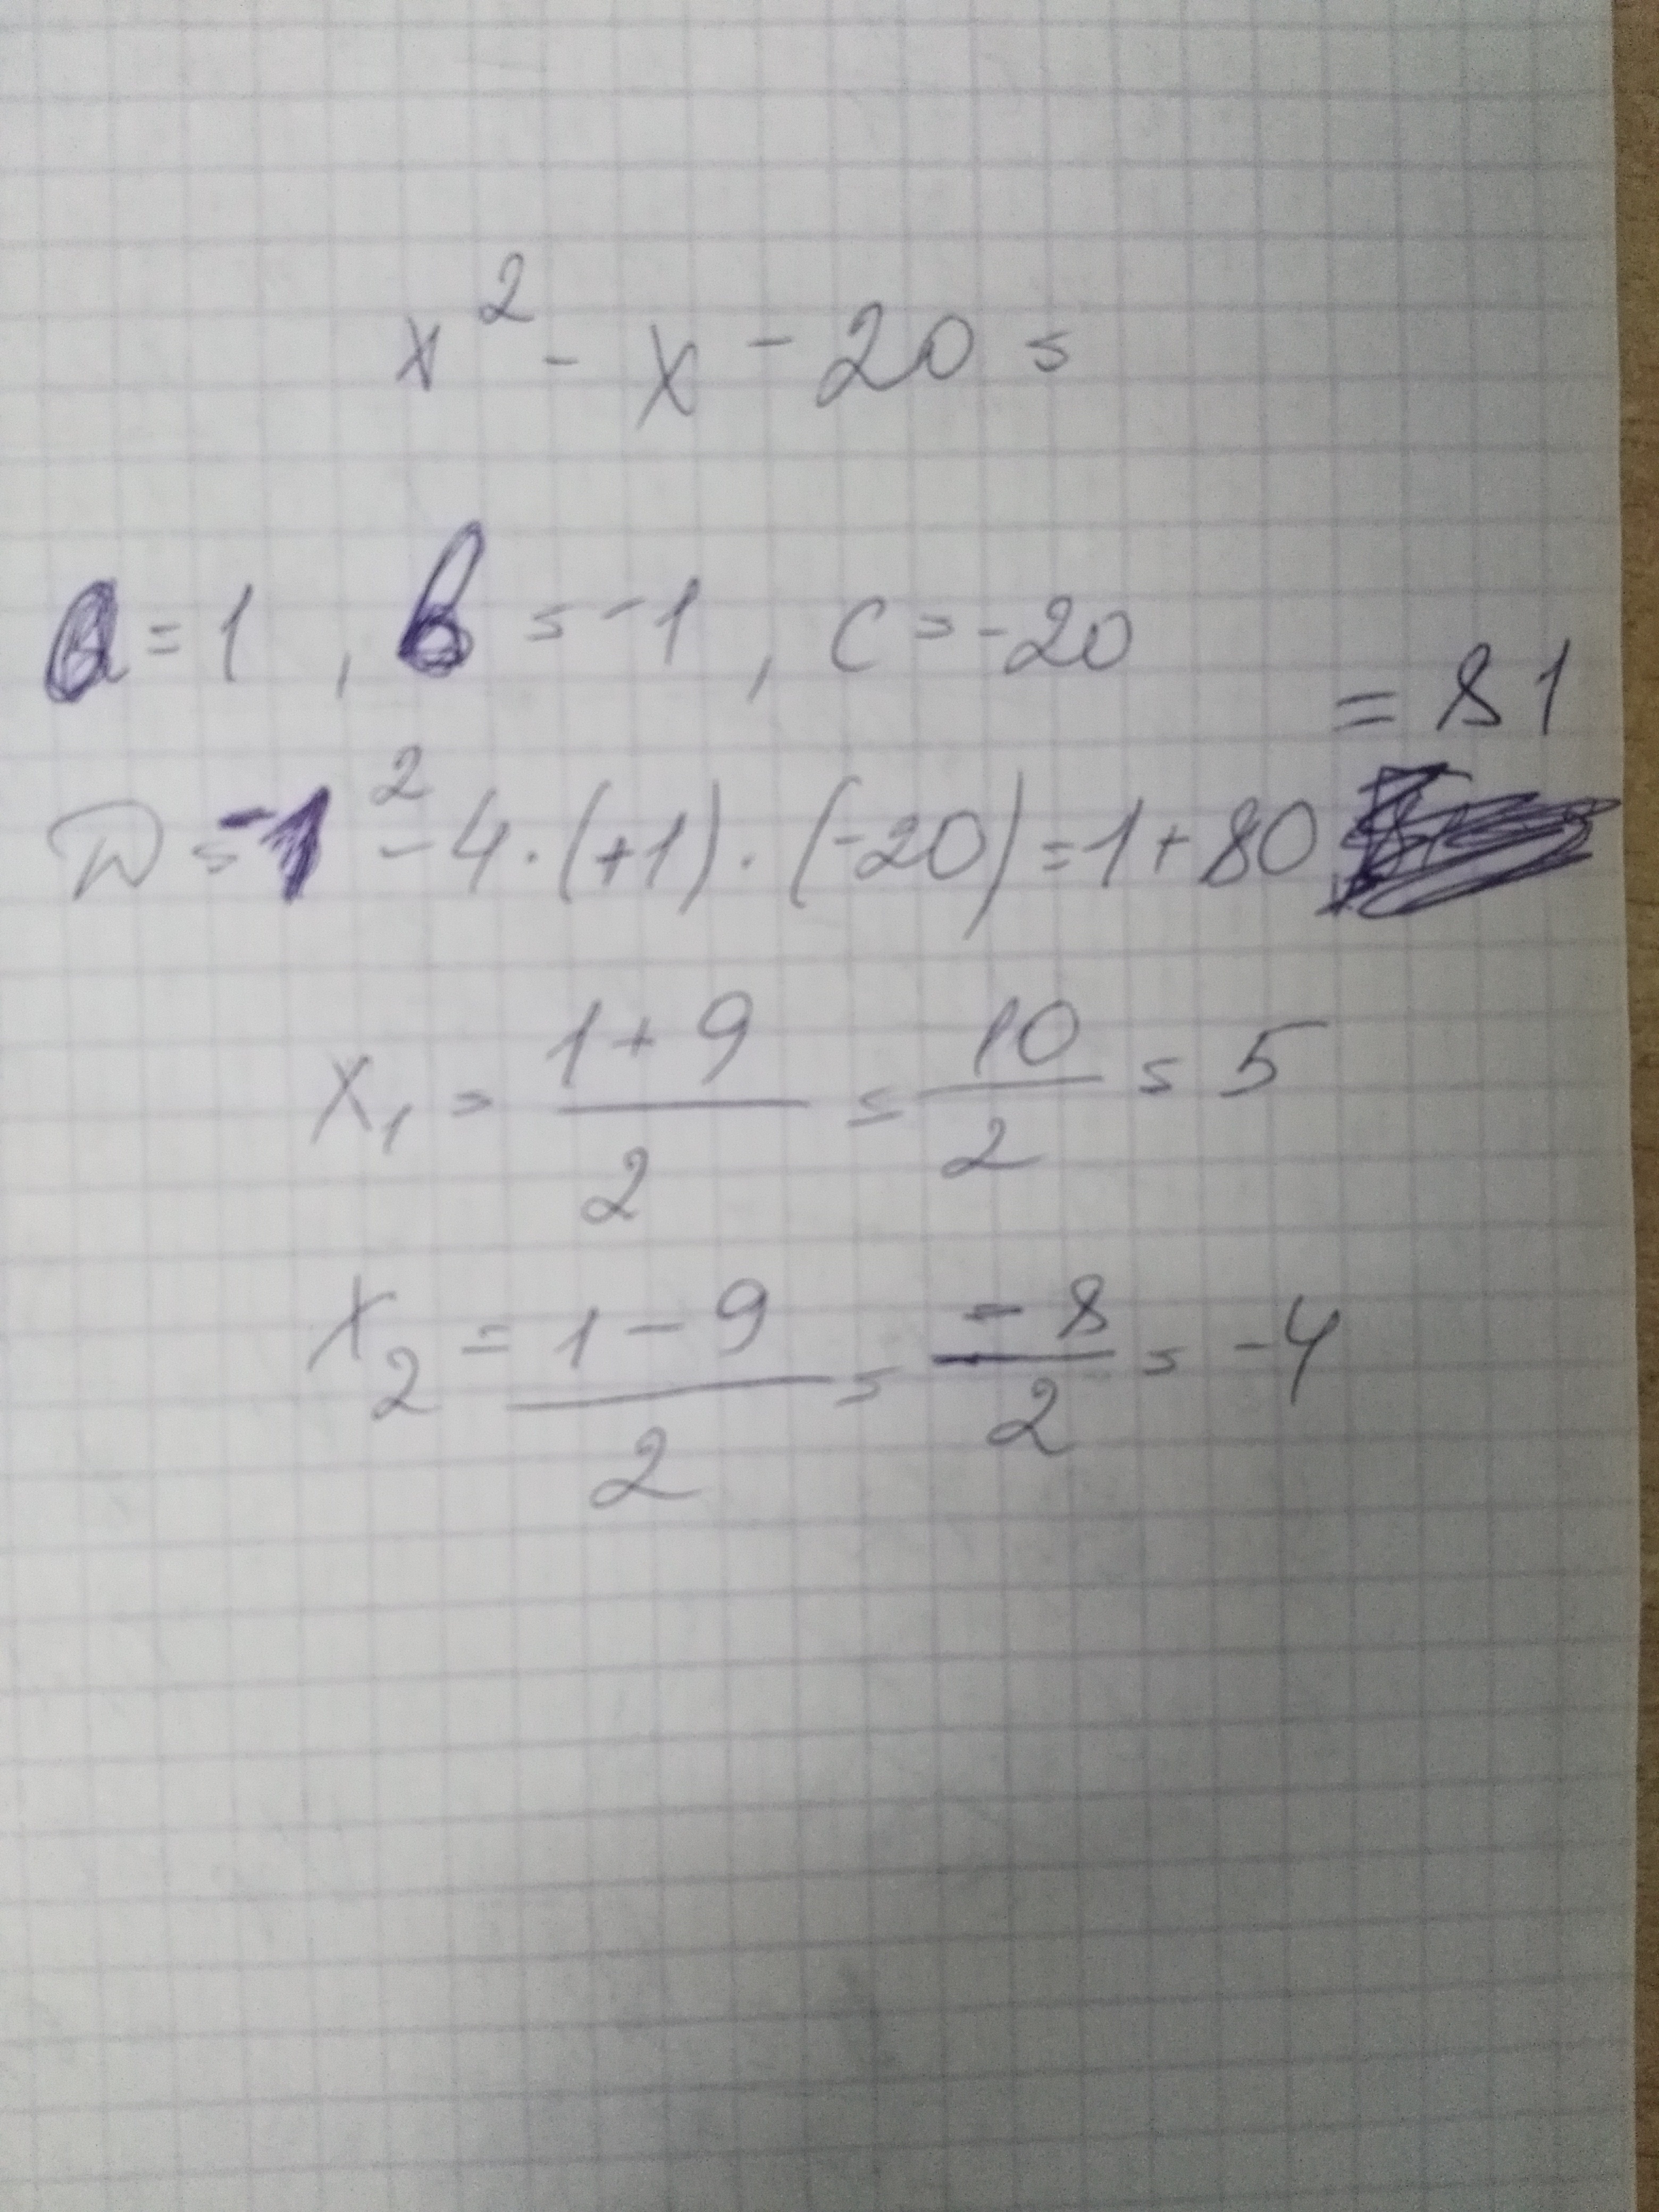 x² - x - 20 =
a = 1, b = -1, c = -20
D = -1² - 4 · (+1) · (-20) = 1 + 80 = 81
x₁ = (1 + 9)/2 = 10/2 = 5
x₂ = (1 - 9)/2 = -8/2 = -4